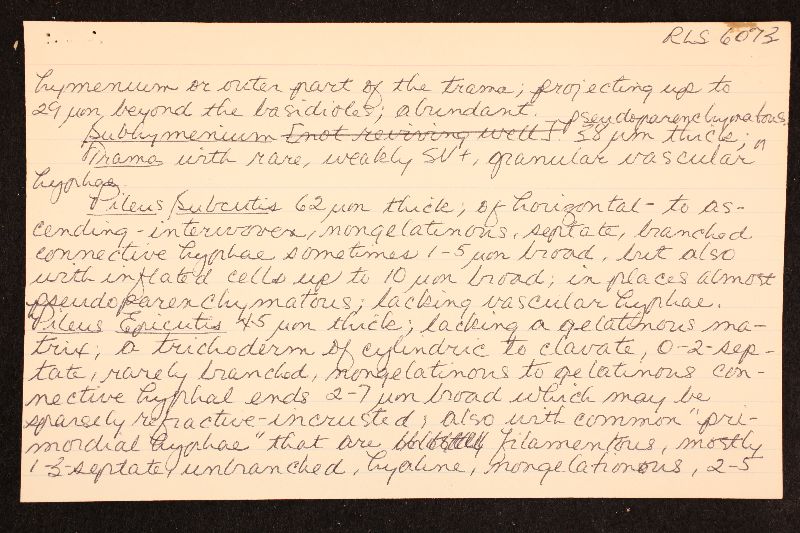 RLS 6073
hymenium or outer part of the trama; projecting up to
29 µm beyond the basidioles; abundant.
Subhymenium [not reviving well]. 38 µm thick; pseudoparenchymatous.
Trama with rare, weakly SV+, granular vascular
hyphae.
Pileus Subcutis 62 µm thick; of horizontal- to as-
cending-interwoven, nongelatinous, septate, branched
connective hyphae sometimes 1-5 µm broad, but also
with inflated cells up to 10 µm broad; in places almost
pseudoparenchymatous; lacking vascular hyphae.
Pileus Epicutis 45 µm thick; lacking a gelatinous ma-
trix; a trichoderm of cylindric to clavate, 0-2-sep-
tate, rarely branched, nongelatinous to gelatinous con-
nective hyphal ends 2-7 µm broad which may be
sparsely refractive-incrusted; also with common "pri-
mordial hyphae" that are filamentous, mostly
1-3-septate, unbranched, hyaline, nongelationous, 2-5